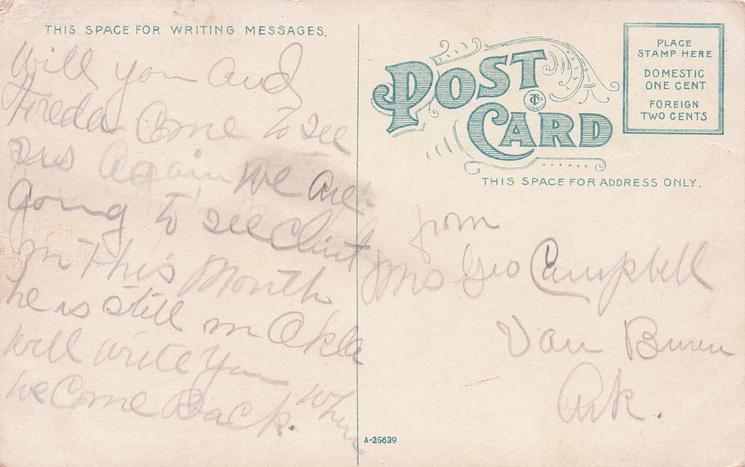 THIS SPACE FOR WRITING MESSAGES.
Will you and
Freda Come to see
us Again we are
going to see Clint
in this Month
he is still in Okla
will write you when
we come Back.
POST CARD
THIS SPACE FOR ADDRESS ONLY.
PLACE
STAMP HERE
DOMESTIC
ONE CENT
FOREIGN
TWO CENTS
from
Mrs Geo Campbell
Van Buren
Ark.
A-25639